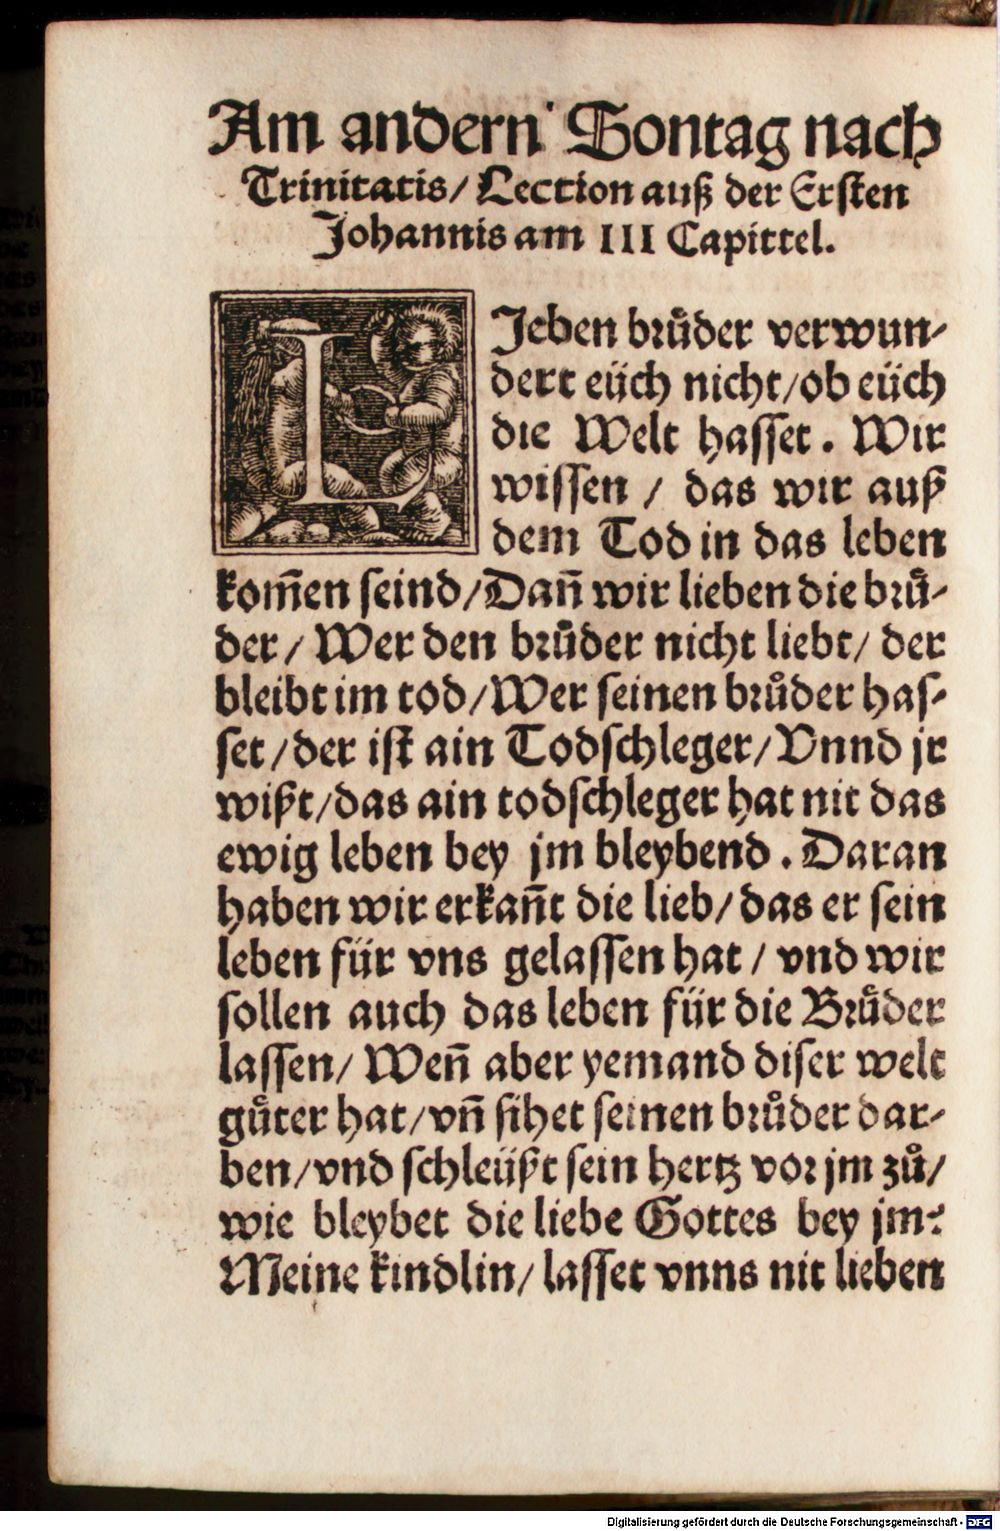 Am andern Sontag nach
Trinitatis/ Lection auß der Ersten
Johannis am III Capittel.
LJeben bruͤder verwun-
dert eüch nicht/ob eüch
die Welt hasset. Wir
wissen / das wir auß
dem Tod in das leben
kom̃en seind/Dañ wir lieben die bruͤ-
der/ Wer den bruͤder nicht liebt/ der
bleibt im tod/Wer seinen bruͦder has-
set/der ist ain Todschleger/Vnnd jr
wißt/das ain todschleger hat nit das
ewig leben bey jm bleybend. Daran
haben wir erkañt die lieb/das er sein
leben für vns gelassen hat / vnd wir
sollen auch das leben für die Bruͤder
lassen/ Weñ aber yemand diser welt
guͤter hat/vñ sihet seinen bruͦder dar-
ben/vnd schleüßt sein hertz vor jm zuͦ/
wie bleybet die liebe Gottes bey jm?
Meine kindlin/ lasset vnns nit lieben
Digitalisierung gefördert durch die Deutsche Forschungsgemeinschaft - DFG